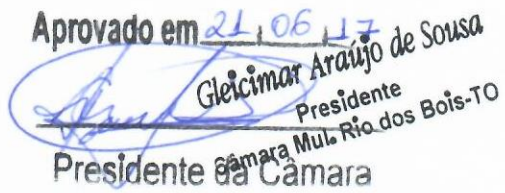 Aprovado em 21 / 06 / 17
Gleicimar Araújo de Sousa
Presidente
Câmara Mul. Rio dos Bois-TO
Presidente da Câmara